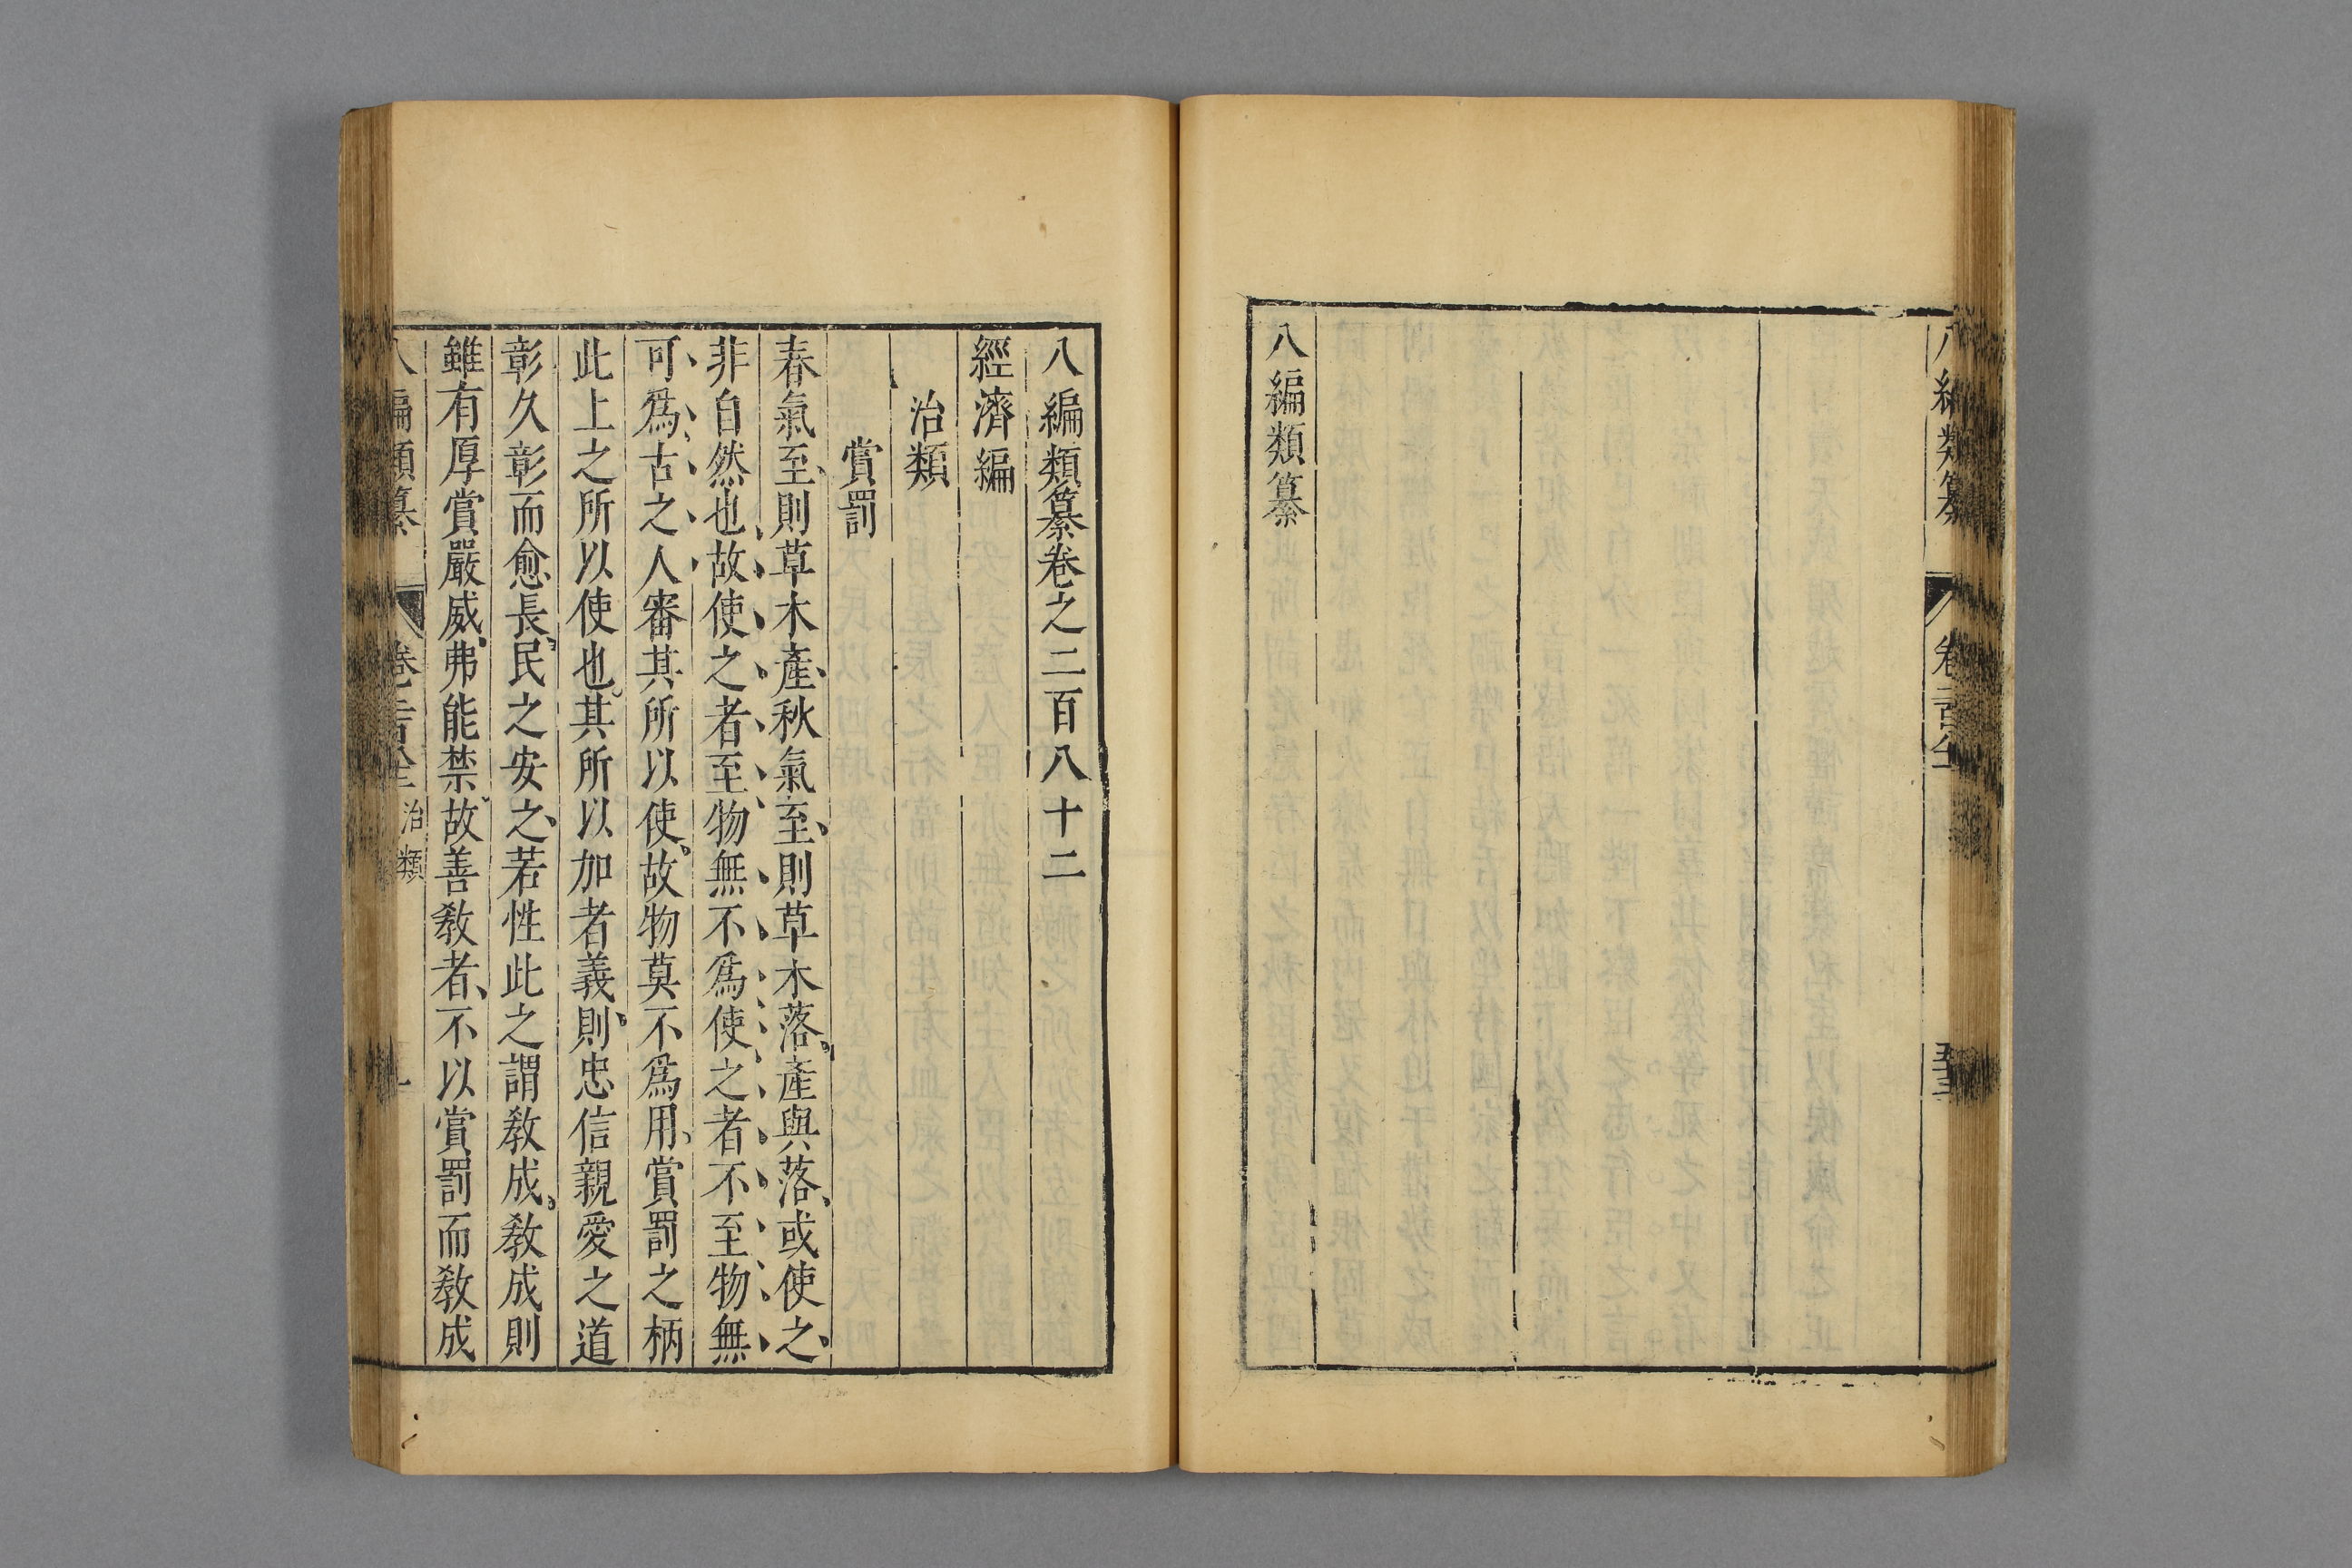 八編類纂
八編類纂卷之二百八十二
經濟編
治類
賞罰
春氣至、則草木產、秋氣至、則草木落、產與落、或使之、
非自然也、故使之者至物無不爲使之者不至物無
可爲古之人審其所以使、故物莫不爲用、賞罰之柄
此上之所以使也、其所以加者義、則忠信親愛之道
彰久彰而愈長、民之安之、若性此之謂教成、教成則
雖有厚賞嚴威、弗能禁、故善教者、不以賞罰而教成
治類